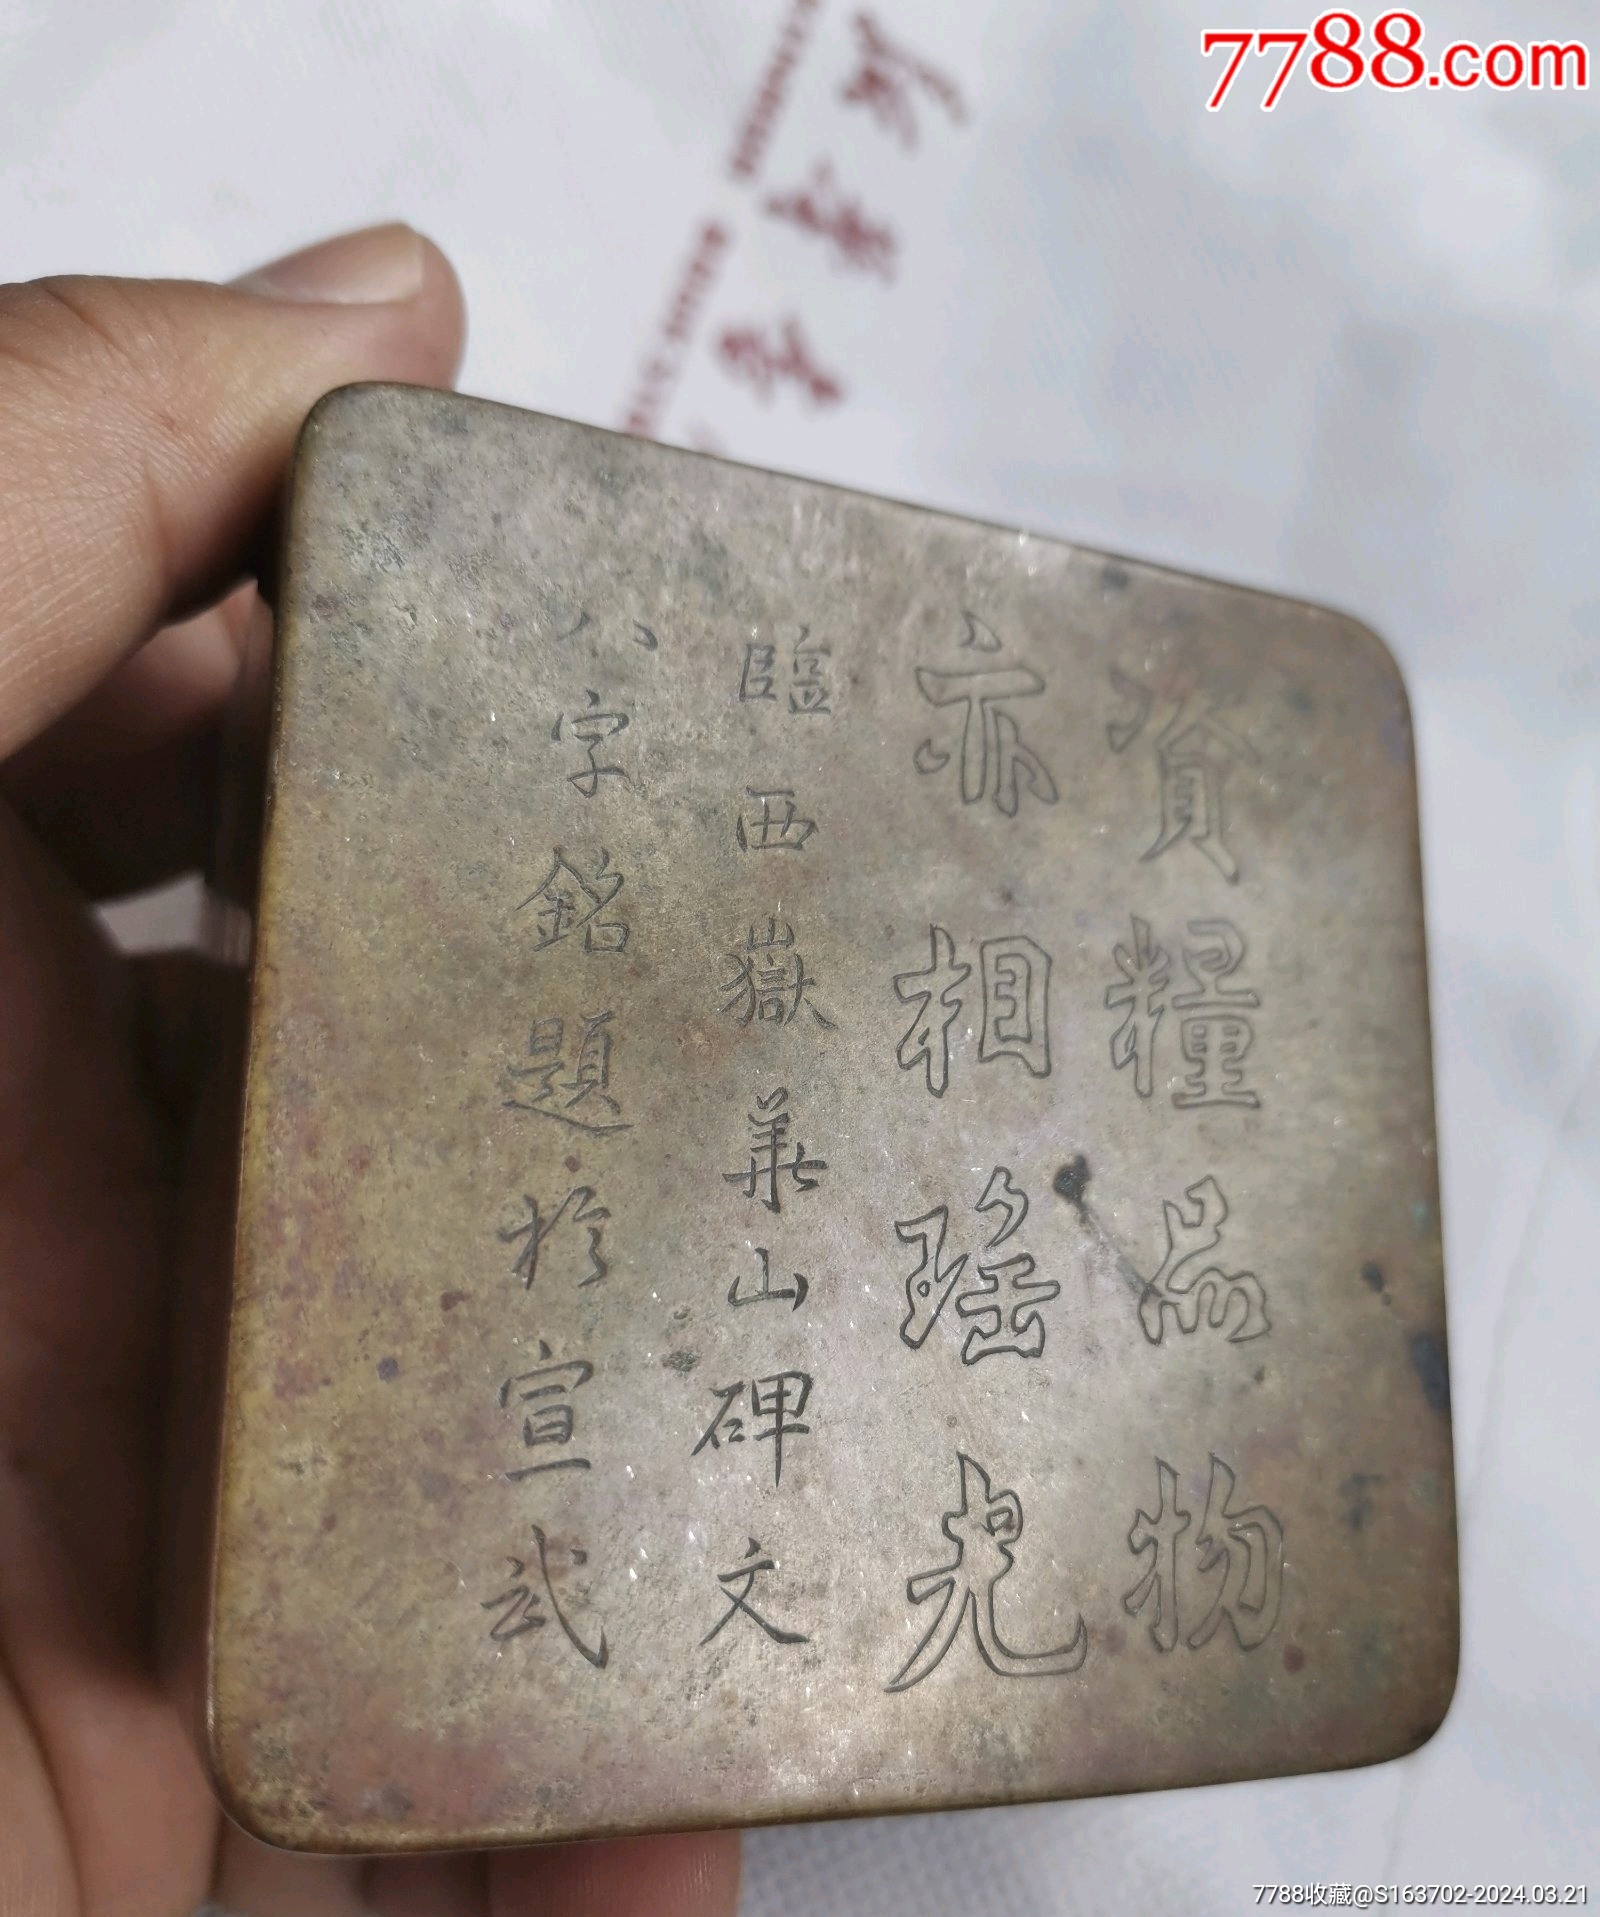 7788.com
資糧品物
亦相瑤光
臨西嶽華山碑文
八字銘題於宣武
7788收藏@S163702-2024.03.21